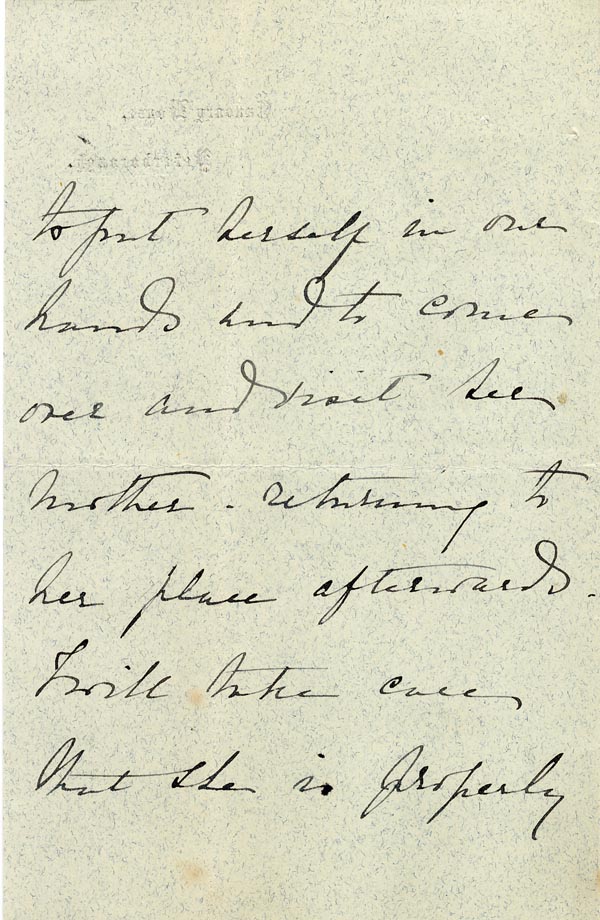 to put herself in our
hands and to come
over and visit her
mother - returning to
her place afterwards -
I will take care
that she is properly